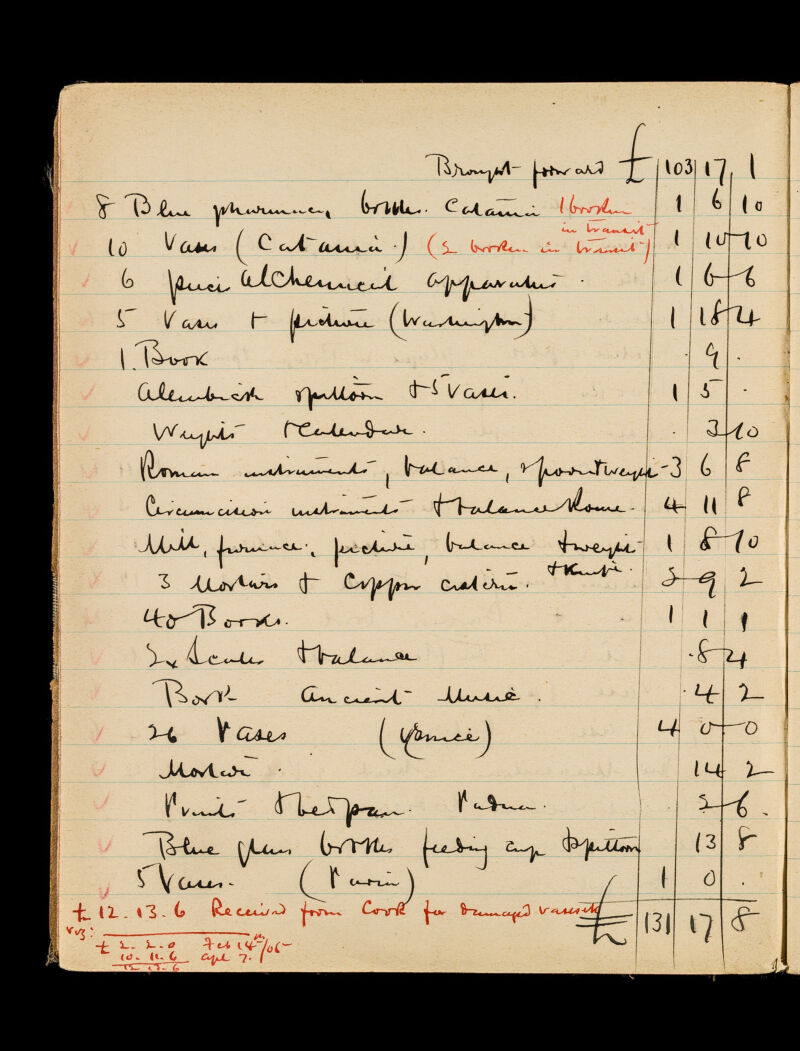 Brought forward £ 103 17 1
8 Blue pharmacy bottles. Catania 1 broken in transit 1 6 10
10 Vases (Catania.) (2 broken in transit) 1 10 10
6 pieces Alchemical apparatus. 1 6 6
5 Vases + picture (Washington) 1 18 4
1. Book . 9 .
Alembick spittoon + 5 Vases. 1 5 .
Weights + Calendar. . 3 10
Roman instruments, balance, spoon + weight 3 6 8
Circumcision instruments + balance Rome. 4 11 8
Mill, furnace, picture, balance + weight 1 8 10
+ Knife.
3 Mortars + Copper cistern. 2 9 2
40 Books. 1 1 1
2 Scales + balance . 8 4
Book Ancient Music. . 4 2
26 Vases (Venice) 4 0 0
Mortar. 14 2
Prints + bedpan. Padua. 2 6.
Blue glass bottles feeding cup + spittoon 13 8
5 Vases. (Turin) 1 0 .
£ 12.13.6 Received from Cook for damaged vases etc
£ 131 17 8
viz:
£ 2. 2. 0 Feb 14th/05
10. 11. 6 Apl 7.
12 13 6